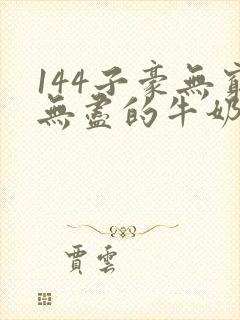 144子豪無窮
無盡的牛奶
賈雲